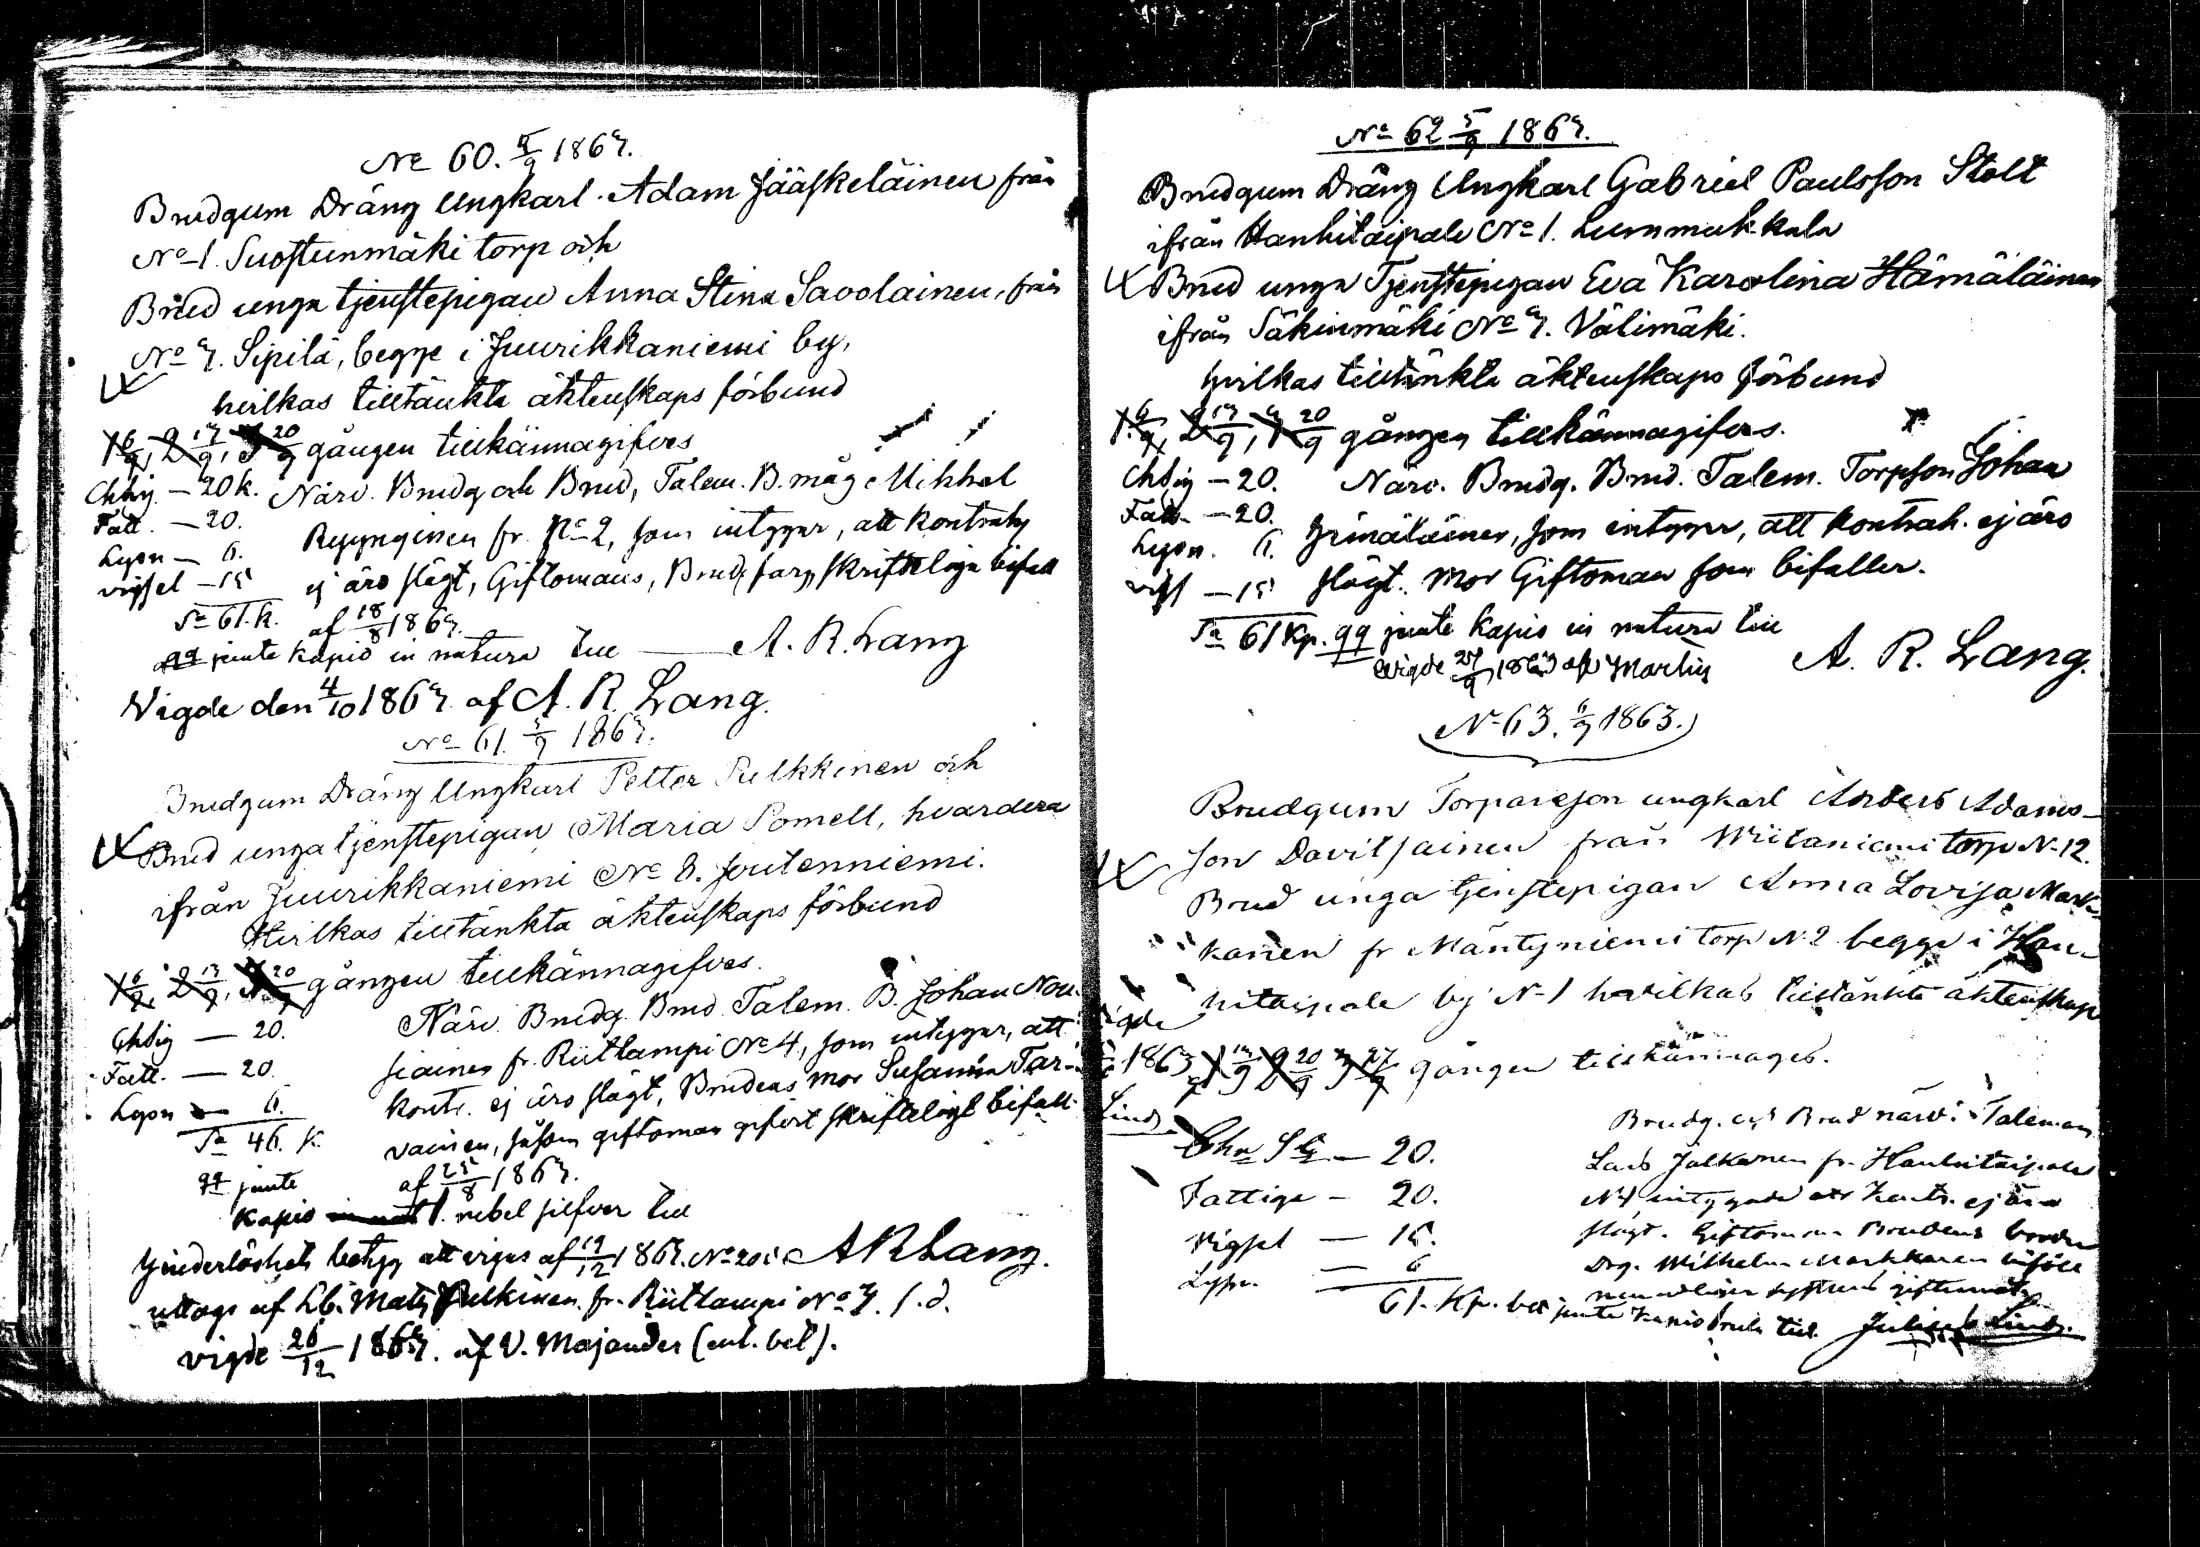 No 60. 5/9 1863.
Brudgum Dräng Ungkarl Adam Jääskeläinen från
No 1. Suostunmäki torp och
Brud unga tjenstepigan Anna Stina Savolainen, från
No 3. Sipilä, begge i Juurikkaniemi by,
hvilkas tilltänkta äktenskaps förbund
1 6/9, 2 13/9, 3 20/9 gången tillkännagifves
Närv. Brudg. och Brud, Talem. B. måg Mikkel
fr. No 2, som intygar, att kontrah
ej äro slägt, Giftomans, Brud. fars, skriftliga bifall
af 18/8 1863.
Chdig. — 20 k.
Fatt. — 20.
Lysn — 6.
vigsel — 15
Sa 61. k.
99 jemte kapio in natura till — A. R. Lang
Vigde den 4/10 1863 af A. R. Lang.
No 61. 5/9 1863.
Brudgum Dräng Ungkarl Petter Pulkkinen och
Brud unga tjenstepigan Maria Pomell, hvardera
ifrån Juurikkaniemi No 8. Joutenniemi.
Hvilkas tilltänkta äktenskaps förbund
1 6/9, 2 13/9, 3 20/9 gången tillkännagifves.
Närv. Brudg. Brud. Talem. B. Johan Nou-
siainen fr. Riitlampi No 4, som intygar, att
kontr. ej äro slägt, Brudens mor Susanna Tar-
vainen, såsom giftoman gifvit skriftligt bifall
af 25/8 1863.
Chdig — 20.
Fatt. — 20.
Lysn — 6.
Sa 46. k.
99 jemte
kapio in nat 1. rubel silfver till
hinderlöshets betyg att vigas af 19/12 1863. No 201 A R Lang.
uttogs af Lb. Mats Pulkinen. fr. Riitlampi No 7. s. d.
vigde 26/12 1863. af V. Majander (enl. bet).
No 62 5/9 1863.
Brudgum Dräng Ungkarl Gabriel Paulsson Stolt
ifrån Hankitaipale No 1. Lummukkala
Brud unga Tjenstepigan Eva Karolina Hämäläinen
ifrån Säkinmäki No 3. Välimäki.
hvilkas tilltänkta äktenskaps förbund
1 6/9, 2 13/9, 3 20/9 gången tillkännagifves.
Närv. Brudg. Brud. Talem. Torpson Johan
Hämäläinen, som intygar, att kontrah. ej äro
slägt. Mor Giftoman som bifaller.
Chdig — 20.
Fatt. — 20.
Lysn. 6.
vigs — 15
Sa 61 Kp. 99 jemte kapio in natura till
vigde 27/9 1863 af Martin A. R. Lang.
No 63. 6/9 1863.
Brudgum Torpareson ungkarl Anders Adams-
son Davitsainen från Wiitaniemi torp No 12.
Brud unga tjenstepigan Anna Lovisa Mark-
kanen fr Mäntyniemi torp No 2 begge i Han-
kitaipale by No 1 hvilkas tilltänkta äktenskap
1 13/9 2 20/9 3 27/9 gången tillkännages.
Vigde
1863
Lind
Brudg. och Brud närv. Taleman
Lars Jalkanen fr. Hankitaipale
No 1 intygade att kontr. ej äro
slägt. Giftoman Brudens broder
Drg. Wilhelm Markkanen biföll
systrens giftermål.
Chdig — 20.
Fattige — 20.
Vigsel — 15.
Lysn. — 6
61. Kp. jemte kapio till Julius Lind.